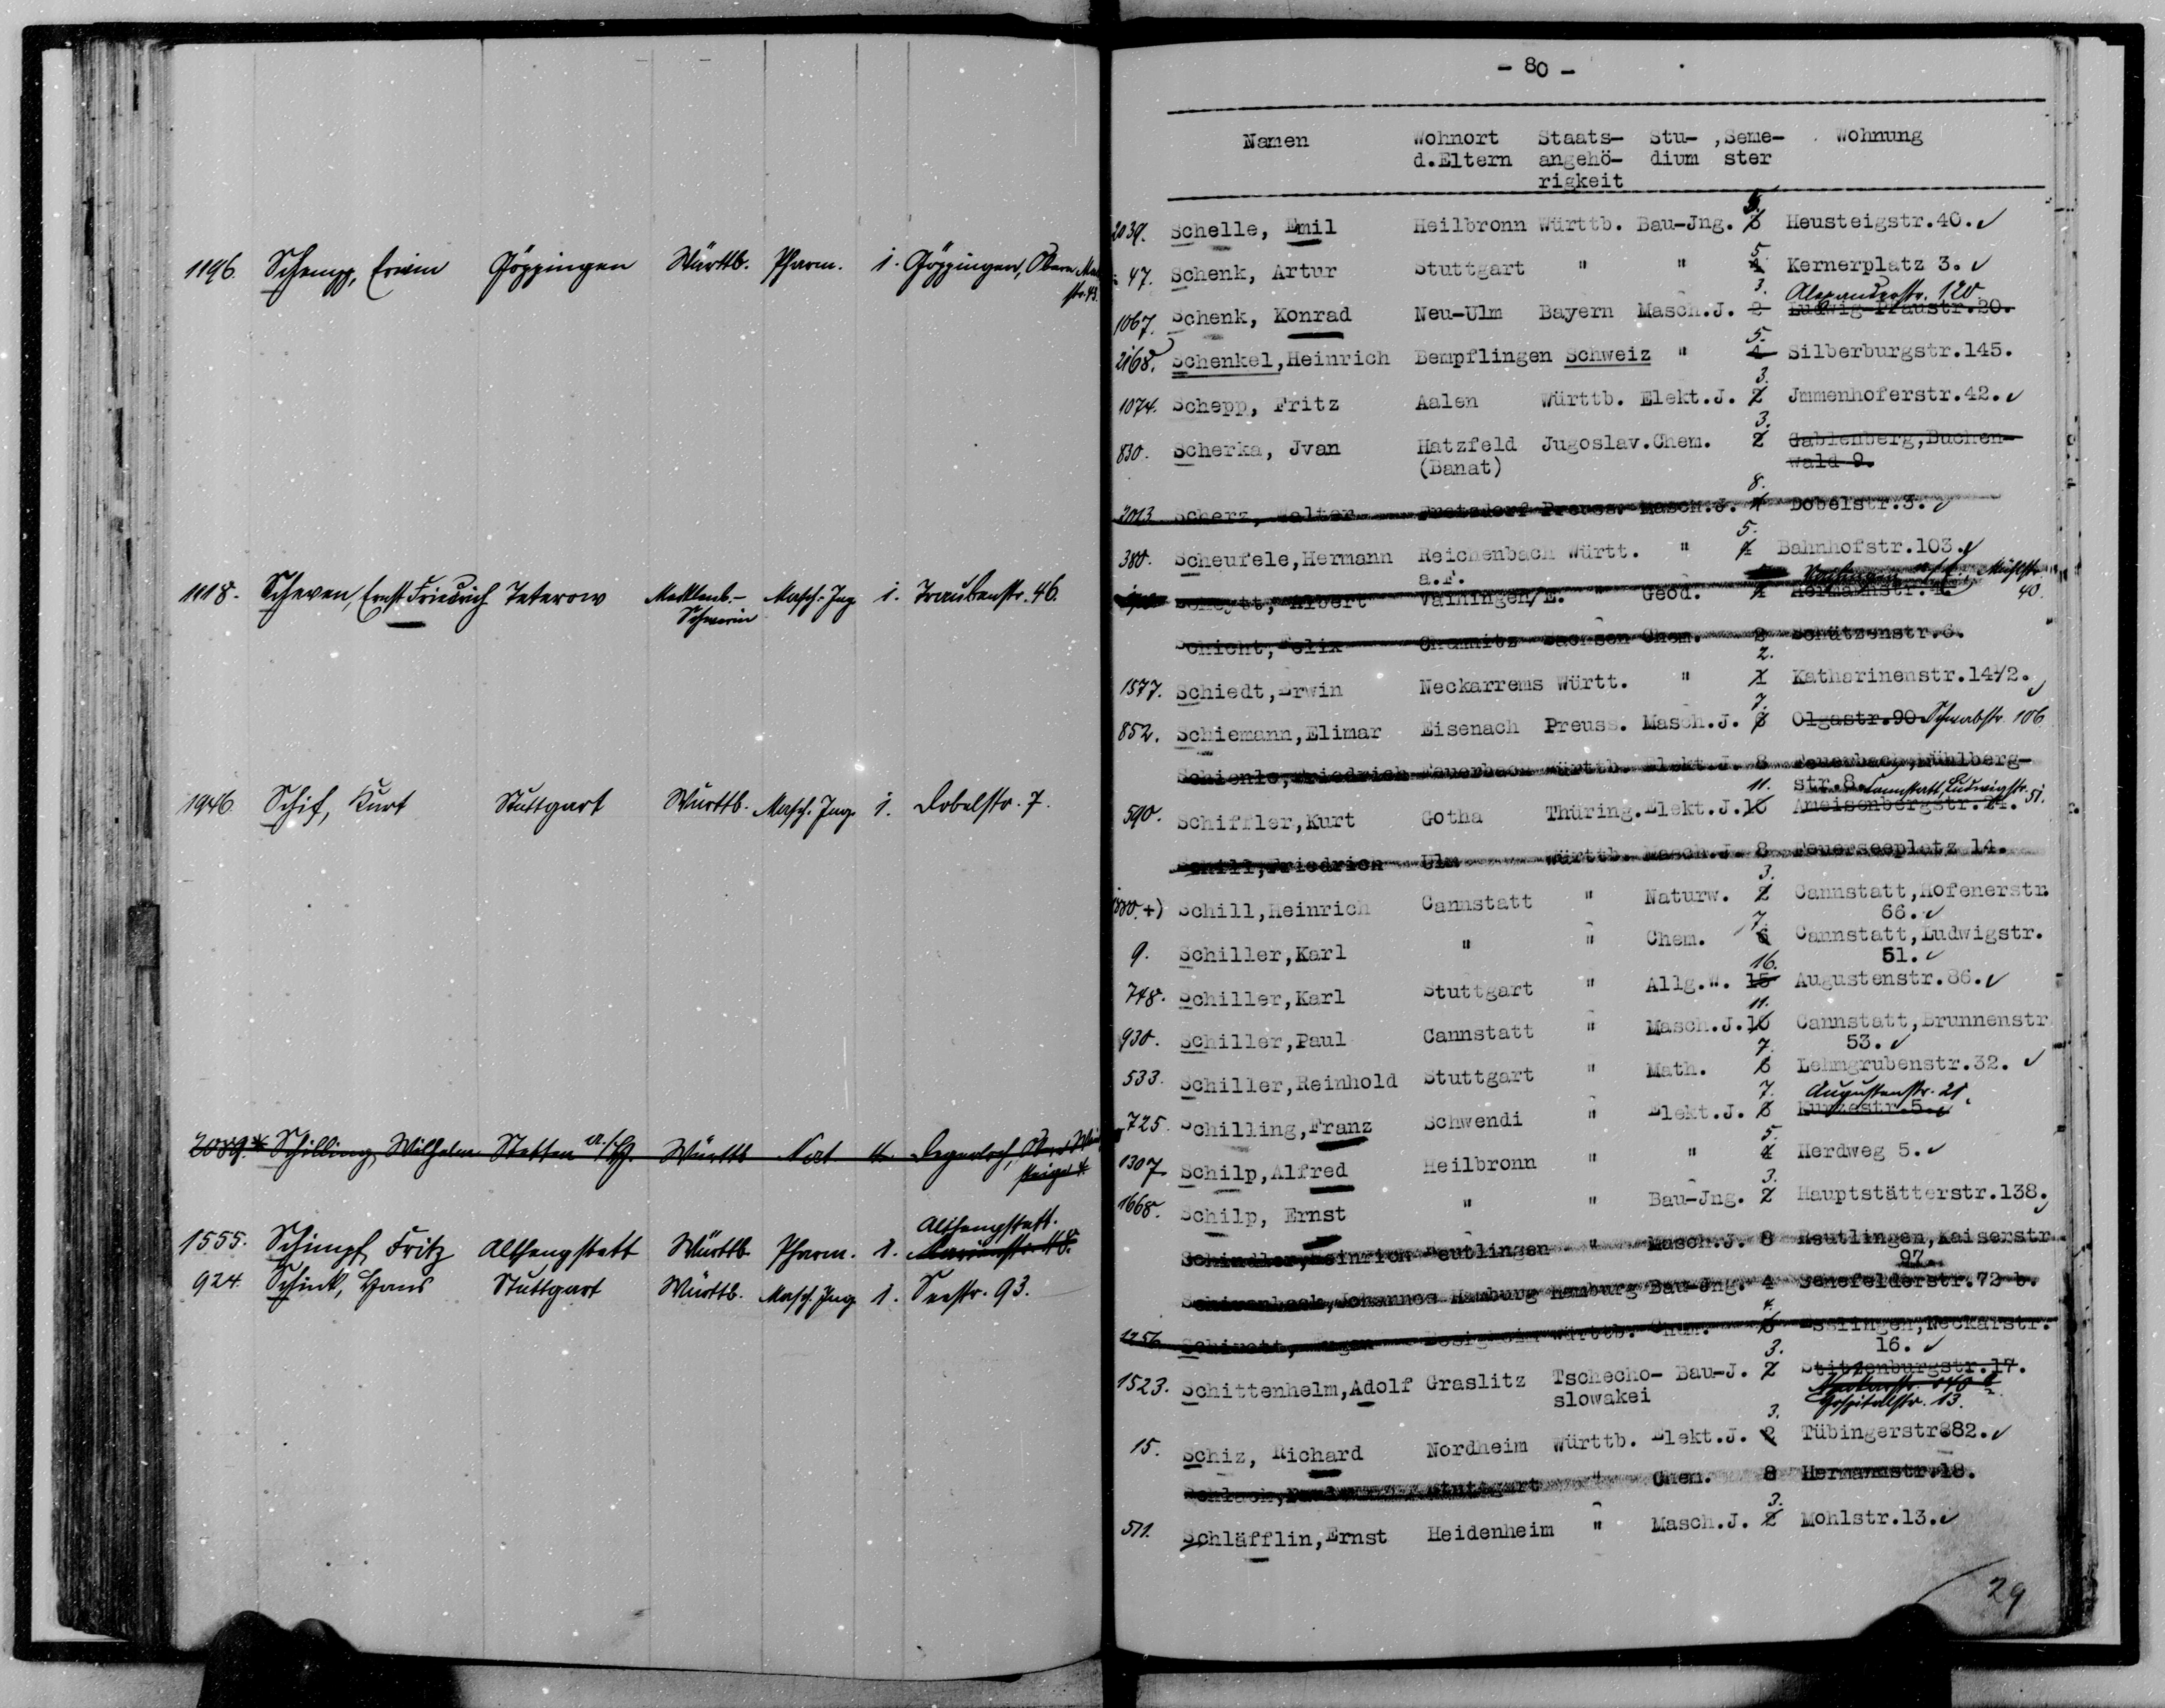 1196. Schempp, Erwin Göppingen Württb. Pharm. 1. Göppingen, Obere
str. 43.
1118. Scheven, Ernst Friedrich Teterow Mecklenb.- Masch. Ing. 1. Traubenstr. 46.
Schwerin
1946. Schif, Kurt Stuttgart Württb. Masch. Ing. 1. Dobelstr. 7.
2089.* Schilling, Wilhelm Stetten Württb. Degerloch,
steige
1555. Schimpf, Fritz Althengstett Württb. Pharm. 1. Althengstett.
924. Schink, Hans Stuttgart Württb. Masch. Ing. 1. Seestr. 93.
- 80 -
Namen Wohnort Staats- Stu- ,Seme- Wohnung
d.Eltern angehö- dium ster
rigkeit
2039. Schelle, Emil Heilbronn Württb. Bau-Jng. Heusteigstr.40.
5.
47. Schenk, Artur Stuttgart " " Kernerplatz 3.
3. Alexanderstr. 120
1067. Schenk, Konrad Neu-Ulm Bayern Masch.J. 2 Ludwig-Pfaustr.20.
5.
2168. Schenkel,Heinrich Bempflingen Schweiz " 4 Silberburgstr.145.
3.
1074. Schepp, Fritz Aalen Württb. Elekt.J. 2 Jmmenhoferstr.42.
3.
830. Scherka, Jvan Hatzfeld Jugoslav.Chem. 2 Gablenberg,Buchen-
(Banat) wald 9.
8.
2013 Scherz, Walter Preuss. Masch.J. Dobelstr.3.
5.
380. Scheufele,Hermann Reichenbach Württ. " Bahnhofstr.103.
a.F. Mühlstr.
40.
Albert Vaihingen/E. " Geod. Hermannstr.
Schicht,Felix Chemnitz Sachsen Chem. 2 Schützenstr.6.
2.
1577. Schiedt,Erwin Neckarrems Württ. " 1 Katharinenstr.14½.
7.
852. Schiemann,Elimar Eisenach Preuss. Masch.J. 6 Olgastr.90 Schwabstr. 106
Schienle,Friedrich Feuerbach Württb. Elekt.J. 8 Feuerbach,Mühlberg-
11. str.8. Cannstatt, Ludwigstr. 51.
590. Schiffler,Kurt Gotha Thüring.Elekt.J.10 Ameisenbergstr.
Schill,Friedrich Ulm Württb. Masch.J. 8 Feuerseeplatz 14.
3.
+) Schill,Heinrich Cannstatt " Naturw. 2 Cannstatt,Hofenerstr.
7. 66.
9. Schiller,Karl " " Chem. 6 Cannstatt,Ludwigstr.
16. 51.
748. Schiller,Karl Stuttgart " Allg.W. 15 Augustenstr.86.
11.
930. Schiller,Paul Cannstatt " Masch.J.10 Cannstatt,Brunnenstr
7. 53.
533. Schiller,Reinhold Stuttgart " Math. 6 Lehmgrubenstr.32.
7. Augustenstr. 21.
725. Schilling,Franz Schwendi " Elekt.J. 6 Kurzestr.5.
5.
1307 Schilp,Alfred Heilbronn " " 4 Herdweg 5.
3.
1668. Schilp, Ernst " " Bau-Jng. 2 Hauptstätterstr.138.
Schindler,Heinrich Reutlingen " Masch.J. 8 Reutlingen,Kaiserstr
97.
Johannes Hamburg Hamburg Bau-Jng. 4 Senefelderstr.72 b.
1256 Württb. Chem. Esslingen,Neckarstr.
3. 16.
1523. Schittenhelm,Adolf Graslitz Tschecho- Bau-J. 2 Stitzenburgstr.17.
slowakei
Hospitalstr. 13.
3.
15. Schiz, Richard Nordheim Württb. Elekt.J. 2 Tübingerstr882.
Stuttgart " Chem. 8 Hermannstr.18.
3.
511. Schläfflin,Ernst Heidenheim " Masch.J. 2 Mohlstr.13.
29